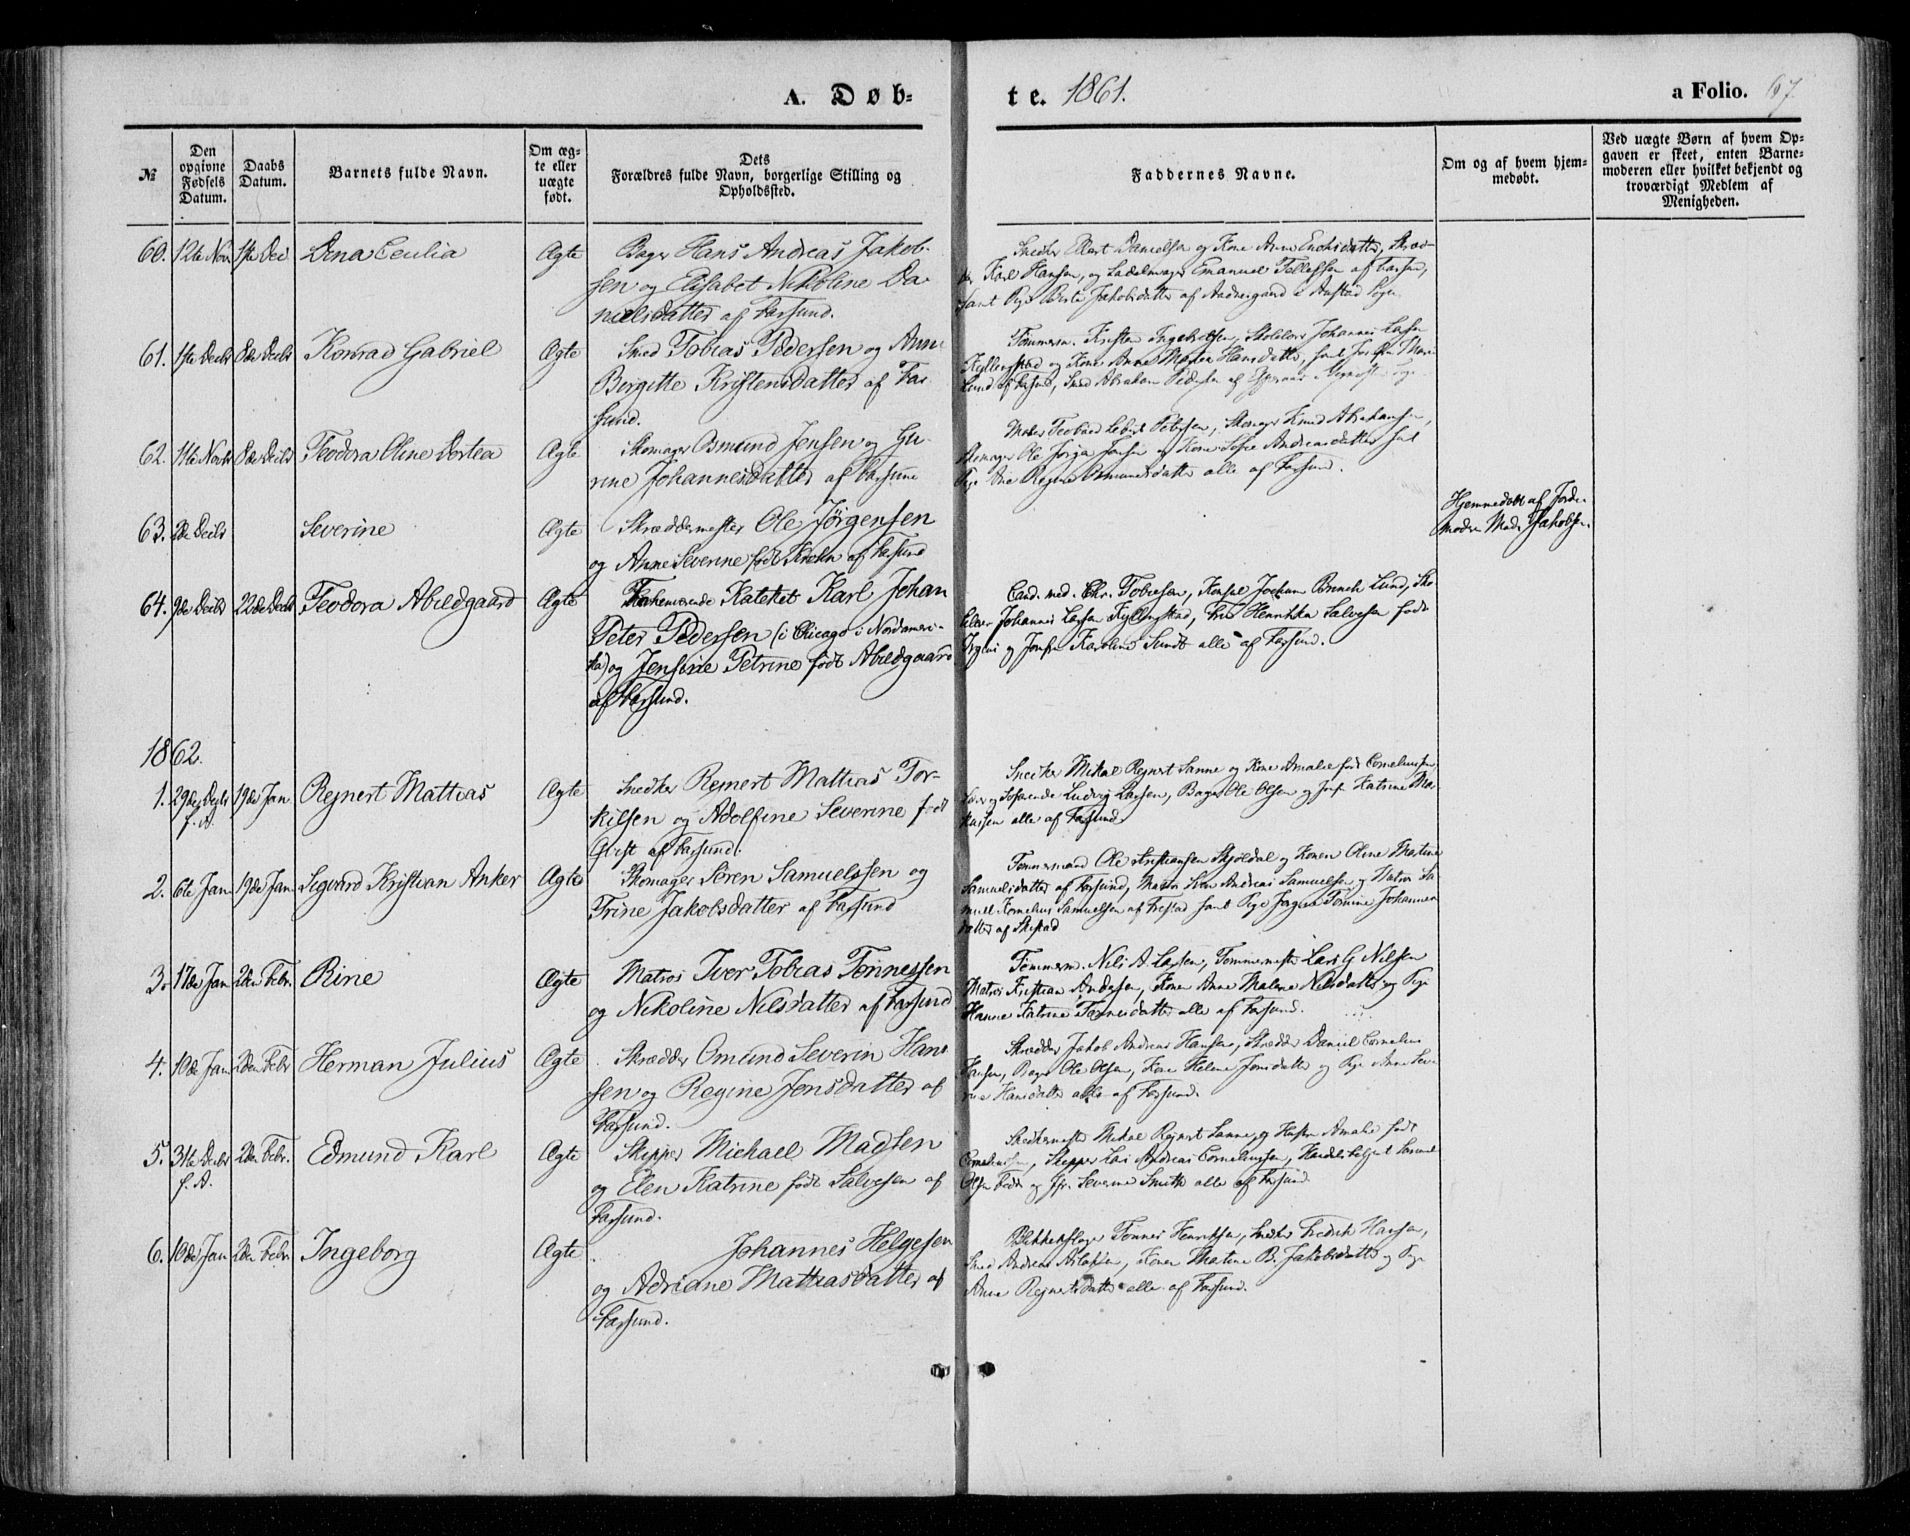 A. Døb-
te. 1861.
a Folio. 67.
№
Den opgivne Fødsels Datum.
Daabs Datum.
Barnets fulde Navn.
Om ægte eller uægte født.
Dets
Forældres fulde Navn, borgerlige Stilling og
Opholdssted.
Faddernes Navne.
Om og af hvem hjem-
medøbt.
Ved uægte Børn af hvem Op-
gaven er skeet, enten Barne-
moderen eller hvilket bekjendt og
troværdigt Medlem af
Menigheden.
60. 12te Nov 1ste Dec Dina Cecilia Ægte Bager Hans Andreas Jakob-
sen og Elisabet Nikoline Da-
nielsdatter af Farsund.
Snedker Elert Danielsen og Kone Anne Endresdatter, Skræd-
der Karl Hansen, og Sadelmager Emanuel Tellefsen af Farsund,
samt Pige Berte Jakobsdatter af
61. 1ste Decbr 8de Decbr Konrad Gabriel Ægte Smed Tobias Pedersen og Anne
Borgitte Kristensdatter af Far
sund.
Tømmerm. Kristen Ingebretsen, Skolelærer Johannes Larsen
Kyllingstad og Kone Anne Marie Hansdatter, samt Josefin Marie
Lund af Farsund, Smed Abraham Pedersen af
62. 11te Novbr 8de Decbr Teodora Oline Dortea Ægte Skomager Osmund Jensen og Gu-
rine Johannesdatter af Farsund
Matros Petersen, Skomager Knud Abrahamsen,
Skomager Ole Jørgen Jensen og Kone Sofie Andreasdatter samt
Pige Ane Regine Osmundsdatter alle af Farsund.
63. 2de Decbr Severine Ægte Skræddermester Ole Jørgensen
og Anne Severine født Krohn af Farsund
Hjemmedøbt af Jorde-
moder Mad. Jakobsen.
64. 9de Decbr 22de Decbr Teodora Abildgaard Ægte Forhenværende Kateket Karl Johan
Peter Pedersen (i Chicago i Nordameri-
ka) og Jensine Petrine født Abildgaard
af Farsund.
Cand. med. Chr. Tobiesen, Konsul Jochum Brinch Lund, Sko-
lelærer Johannes Larsen Kyllingstad, Fru Henrikka Salvesen født
og Jomfru Karoline Sundt alle af Farsund.
1862.
1. 29de Decbr f. A. 19de Jan Rejnert Mattias Ægte Snedker Rejnert Mattias Tor-
kilsen og Adolfine Severine født
Qvist af Farsund.
Snedker Mikal Rejnert Sanne og Kone Amalie født Corneliussen,
Søfarende Ludvig Larsen, Bager Ole Olsen og Jomfr Katrine Mar-
kussen alle af Farsund
2. 6te Jan 19de Jan Sigvard Kristian Anker Ægte Skomager Søren Samuelssen og
Trine Jakobsdatter af Farsund
Tømmermand Ole Kristiansen Skjoldal og Konen Oline Martine
Samuelsdatter af Farsund, Matros Sven Andreas Samuelsen og Matros Sa-
muel Kornelius Samuelsen af Frestad samt Pige Jørgine Tomine Johannes
datter af Skistad
3. 17de Jan 2den Febr. Rine Ægte Matros Iver Tobias Tønnessen
og Nikoline Nilsdatter af Farsund
Tømmerm. Nils A. Larsen, Tømmermester Lars G Nilsen
Matros Kristian Andersen, Konen Anne Malene Nilsdatter og Pige
Hanne Katrine Tønnesdatter alle af Farsund.
4. 10de Jan 2den Febr Herman Julius Ægte Skrædder Omund Severin Han-
sen og Regine Jensdatter af
Farsund.
Skrædder Jakob Andreas Hansen, Skrædder Daniel Cornelius
Hansen, Bager Ole Olsen, Kone Helene Jonsdatter og Pige Anne Seve-
rine Hansdatter alle af Farsund.
5. 31te Decbr f. A. 2den Febr. Edmund Karl Ægte Skipper Michael Madsen
og Elen Katrine født Salvesen af
Farsund.
Snedkermester Mikal Rejnert Sanne, og Hustru Amalie født
Corneliussen, Skipper Kai Andreas Corneliussen, Handelsbetjent Samuel
Olsen Fedde og Jfr. Severine Smith alle af Farsund.
6. 10de Jan 2den Febr Ingeborg Ægte Johannes Helgesen
og Adriane Mattiasdatter af
Farsund.
Blikkenslager Tønnes Henriksen, Snedker Fredrik Hansen,
Smed Andreas Aslaksen, Konen Martine B. Jakobsdatter og Pige
Anne Rejnertsdatter alle af Farsund.